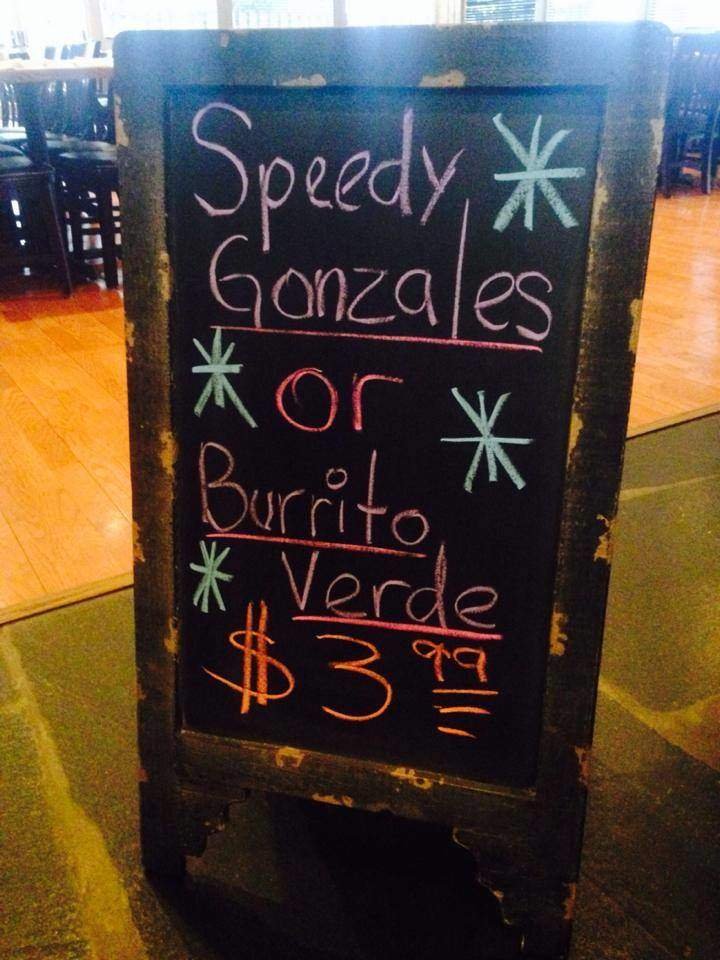 Speedy
Gonzales
or
Burrito
Verde
$3.99